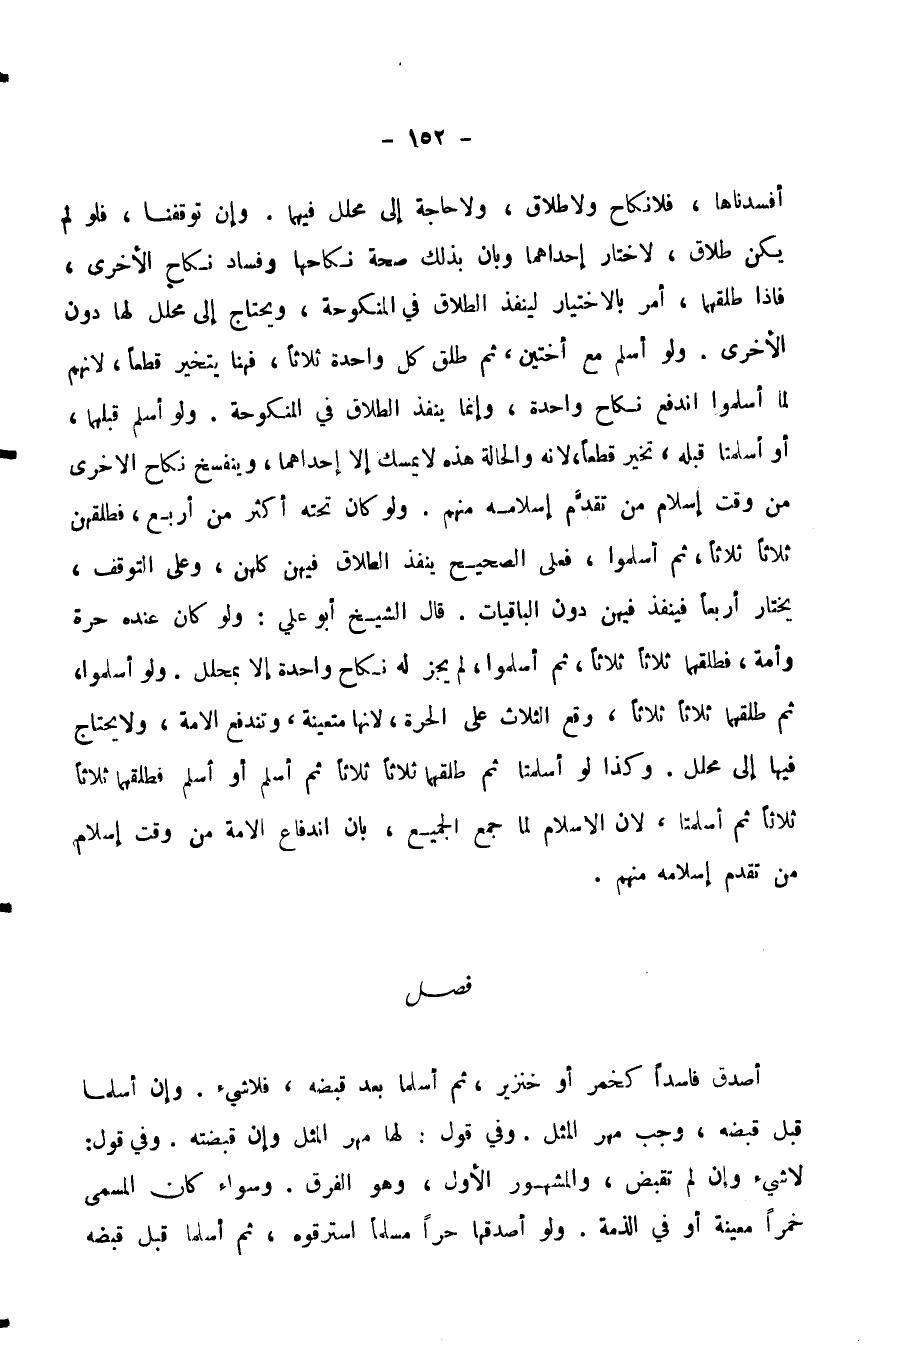 - ١٥٢ -
أفسدناها ، فلانكاح ولاطلاق ، ولاحاجة إلى محلل فيها . وإن توقفنا ، فلو لم
يكن طلاق ، لاختار إحداهما وبان بذلك صحة نكاحها وفساد نكاح الأخرى ،
فاذا طلقها ، أمر بالاختيار لينفذ الطلاق في المنكوحة ، ويحتاج إلى محلل لها دون
الأخرى . ولو أسلم مع أختين ، ثم طلق كل واحدة ثلاثاً ، فهنا يتخير قطعاً ، لانهم
لما أسلموا اندفع نكاح واحدة ، وإنما ينفذ الطلاق في المنكوحة . ولو أسلم قبلهما ،
أو أسلمتا قبله ، تخير قطعاً، لانه والحالة هذه لايمسك إلا إحداهما ، وينفسخ نكاح الاخرى
من وقت إسلام من تقدَّم إسلامه منهم . ولو كان تحته أكثر من أربع ، فطلقهن
ثلاثاً ثلاثاً ، ثم أسلموا ، فعلى الصحيح ينفذ الطلاق فيهن كلهن ، وعلى التوقف ،
يختار أربعاً فينفذ فيهن دون الباقيات . قال الشيخ أبو علي : ولو كان عنده حرة
وأمة ، فطلقها ثلاثاً ثلاثاً ، ثم أسلموا ، لم يجز له نكاح واحدة إلا بمحلل . ولو أسلموا،
ثم طلقها ثلاثاً ثلاثاً ، وقع الثلاث على الحرة ، لانها متعينة ، وتندفع الامة ، ولايحتاج
فيها إلى محلل . وكذا لو أسلمتا ثم طلقها ثلاثاً ثلاثاً ثم أسلم أو أسلم فطلقها ثلاثاً
ثلاثاً ثم أسلمتا ، لان الاسلام لما جمع الجميع ، بان اندفاع الامة من وقت إسلام
من تقدم إسلامه منهم .
فصل
أصدق فاسداً كخمر أو خنزير ، ثم أسلما بعد قبضه ، فلاشيء . وإن أسلما
قبل قبضه ، وجب مهر المثل . وفي قول : لها مهر المثل وإن قبضته . وفي قول:
لاشيء وإن لم تقبض ، والمشهور الأول ، وهو الفرق . وسواء كان المسمى
خمراً معينة أو في الذمة . ولو أصدقها حراً مسلماً استرقوه ، ثم أسلما قبل قبضه